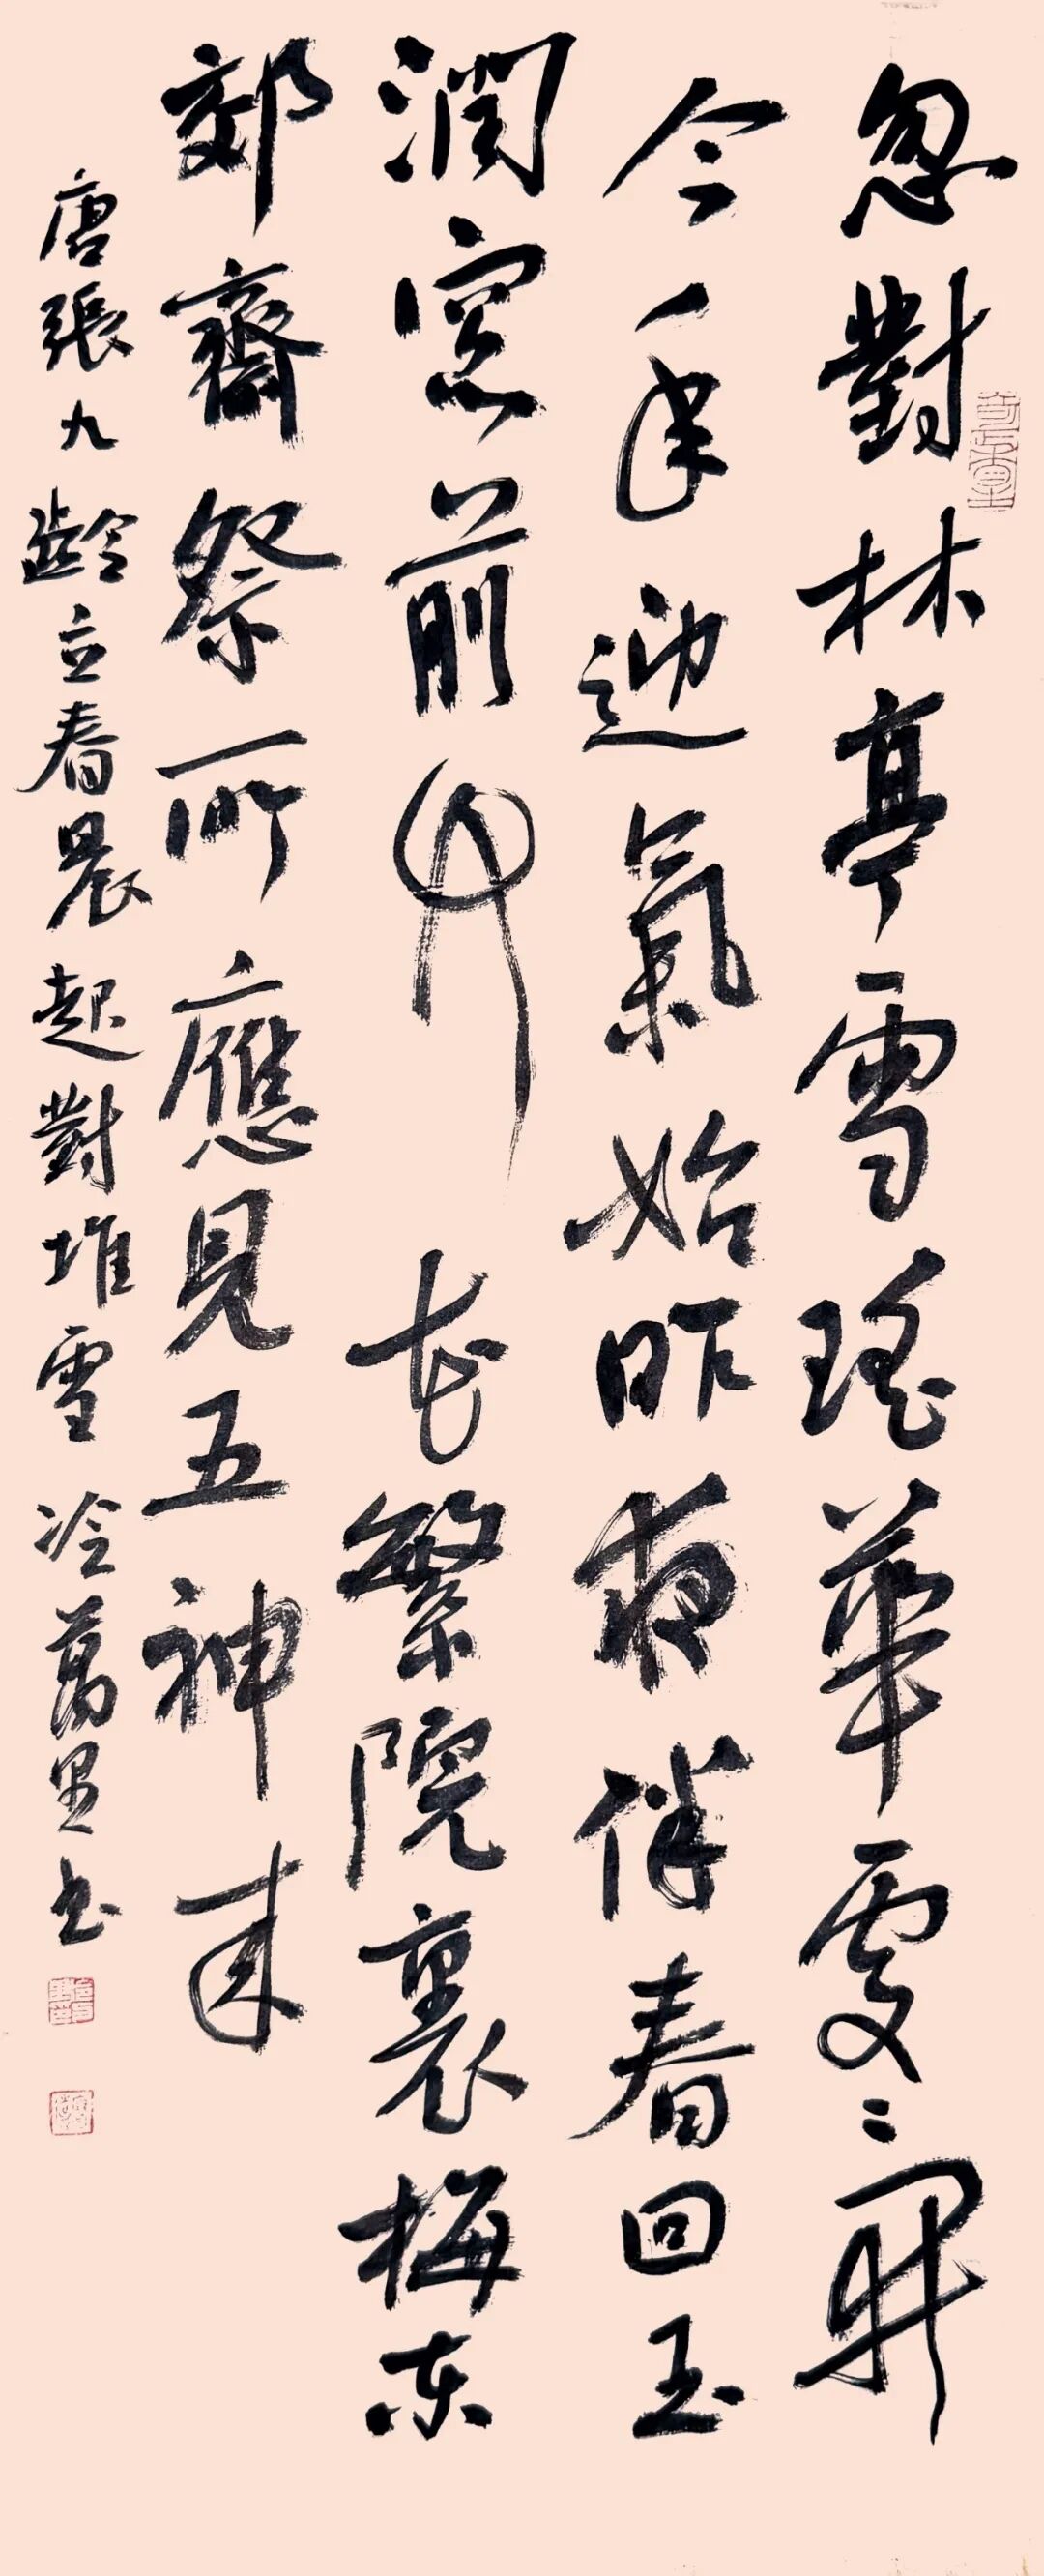 忽對林亭雪瑤華處〻開
今年迎氣始昨夜伴春回玉
潤窓前竹花繁院裏梅東
郊齋祭所應見五神來
唐張九齡立春晨起對堆雪 冷萬里書